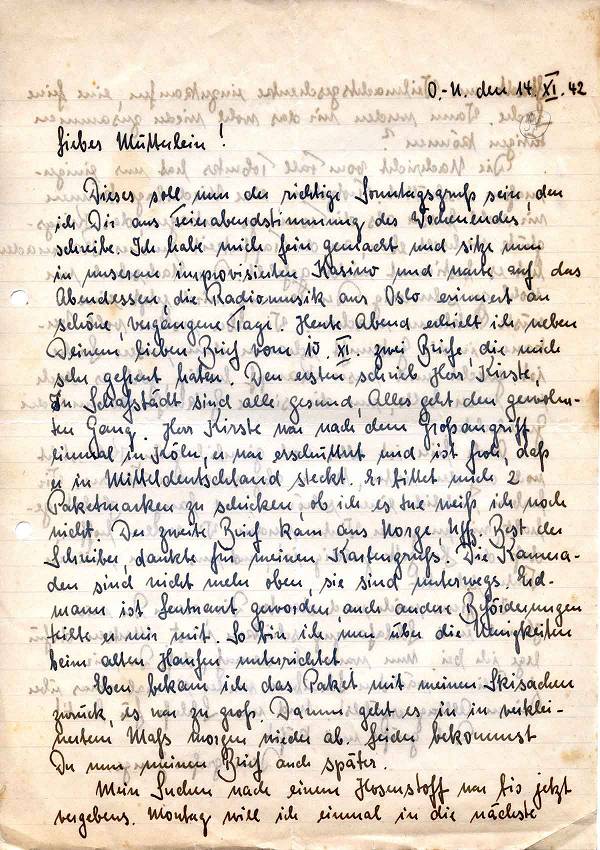 O.-U. den 14. XI. 42
Liebes Mütterlein!
Dieses soll nun der richtige Sonntagsgruß sein, den
ich Dir aus Feierabendstimmung des Wochenendes,
schreibe. Ich habe mich fein gemacht und sitze nun
in unserem improvisierten Kasino und warte auf das
Abendessen, die Radiomusik aus Oslo erinnert an
schöne, vergangene Tage. Heute Abend erhielt ich neben
Deinem lieben Brief vom 10. XI. zwei Briefe die mich
sehr gefreut haben. Den ersten schrieb Herr Kirste,
In Schafstädt sind alle gesund, Alles geht den gewohn-
ten Gang. Herr Kirste war nach dem Großangriff
einmal in Köln, er war erschüttert und ist froh, daß
er in Mitteldeutschland steckt. Er bittet mich 2
Paketmarken zu schicken, ob ich es tue weiß ich noch
nicht. Der zweite Brief kam aus Norge, Uffz. Best der
Schreiber, dankte für meinen Kartengruß. Die Kamera-
den sind nicht mehr oben, sie sind unterwegs. Erd-
mann ist Leutnant geworden, auch andere Beförderungen
teilte er mir mit. So bin ich nun über die Neuigkeiten
beim alten Haufen unterrichtet
Eben bekam ich das Paket mit meinen Skisachen
zurück, es war zu groß. Darum geht es in in verklei-
nertem Maß morgen wieder ab. Leider bekommst
Du nun meinen Brief auch später.
Mein Suchen nach einem Hosenstoff war bis jetzt
vergebens. Montag will ich einmal in die nächste